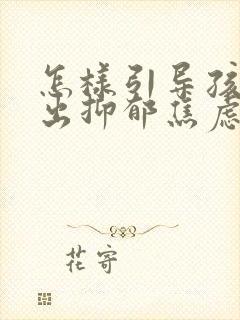 怎样引导孩
出抑郁焦虑
花寄